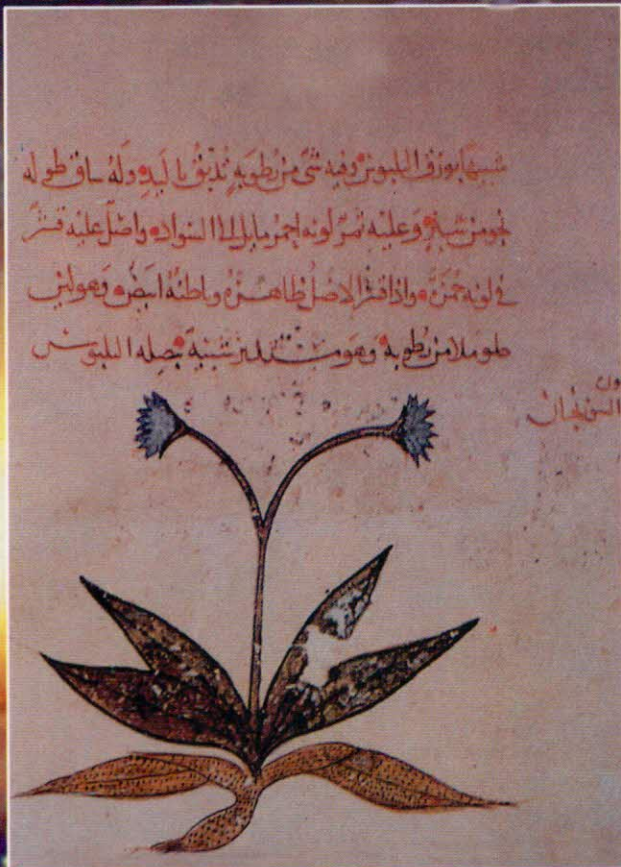 شبيها بورق البلبوس وفيه شئ من رطوبة تدبق باليد وله ساق طوله
نحو من شبر وعليه ثمر لونه احمر مايل الى السواد واصل عليه قشر
في لونه حمرة واذا قشر الاصل ظاهره وباطنه ابيض وهو لين
حلو ملا من رطوبة وهو مستدير شبيه ببصله البلبوس
السورنجان